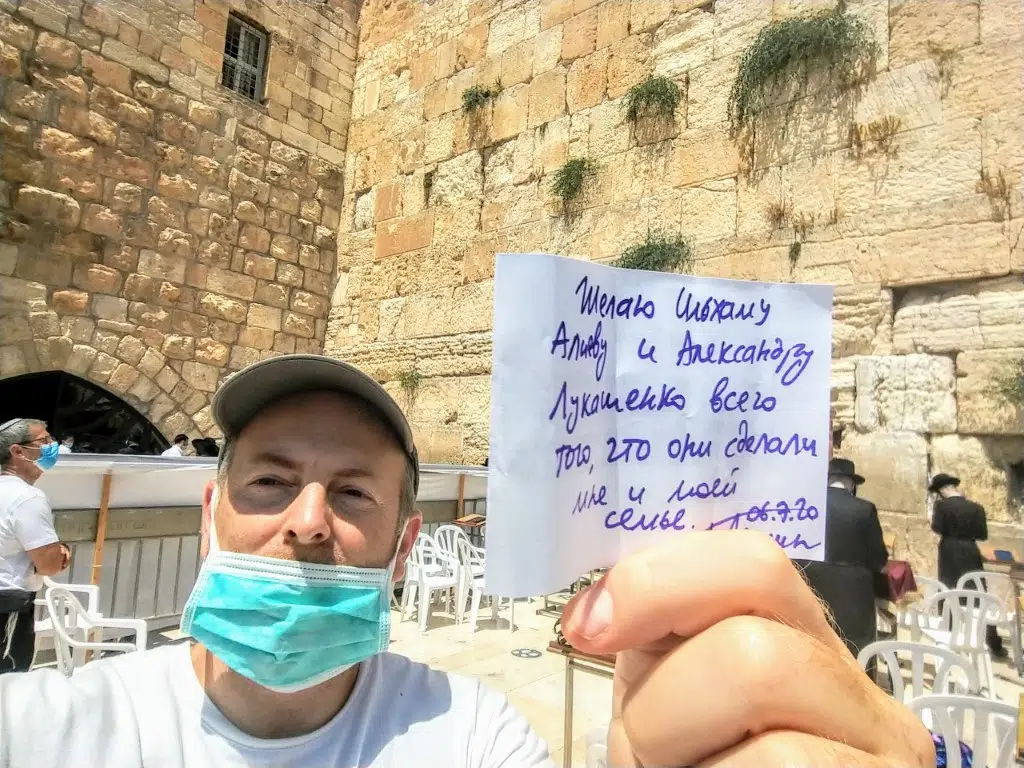 Желаю Ильхаму
Алиеву и Александру
Лукашенко всего
того, что они сделали
мне и моей
семье. 06.7.20